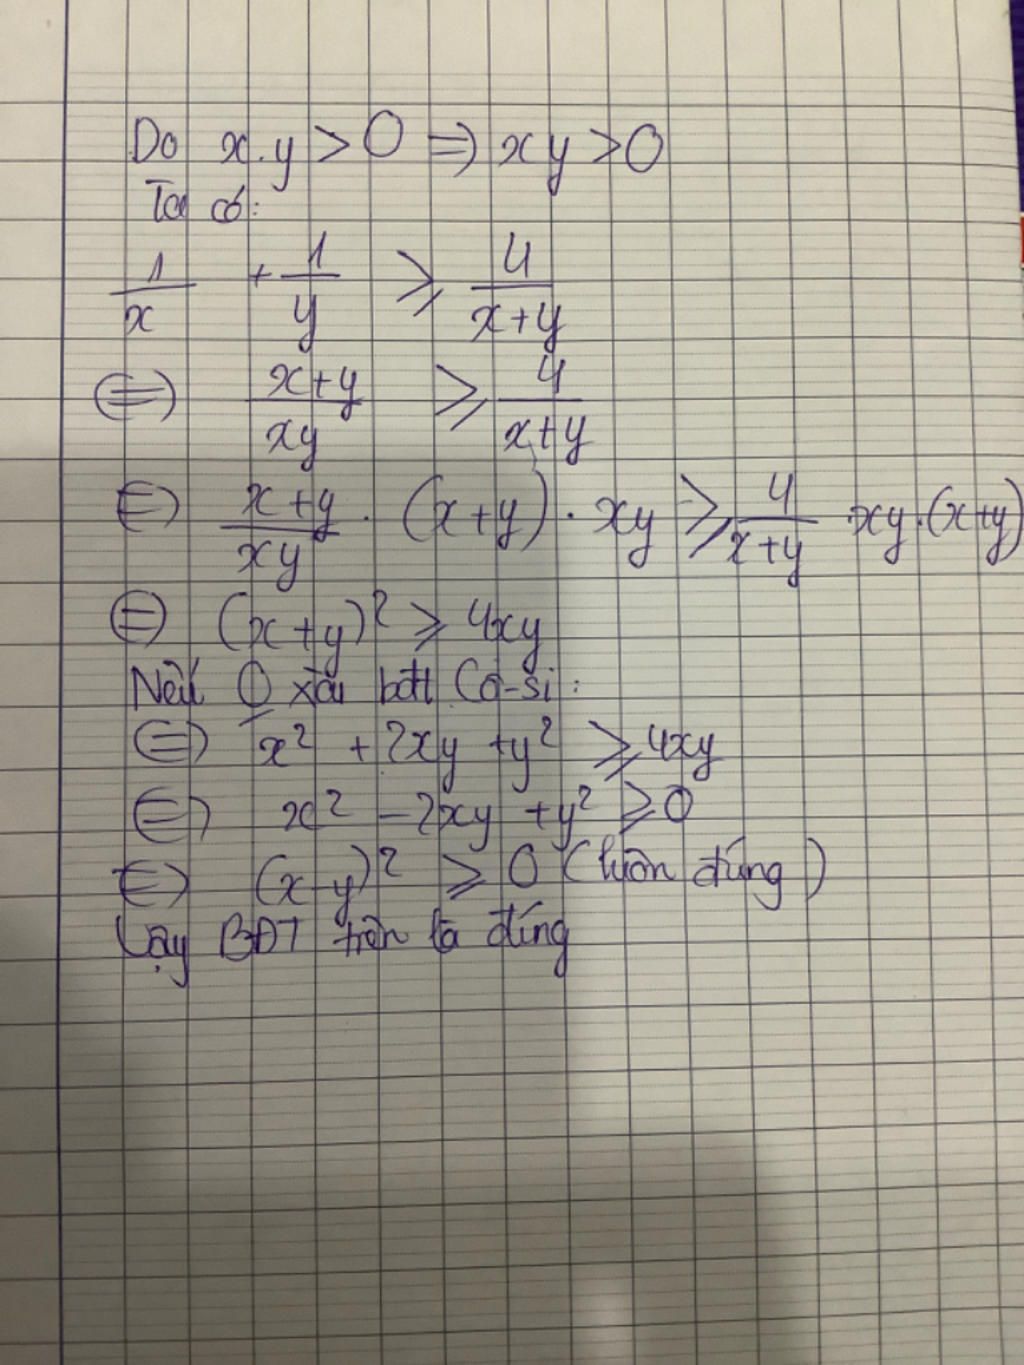 Do x.y > 0 => xy > 0
Ta có:
1/x + 1/y ≥ 4/(x+y)
<=> (x+y)/xy ≥ 4/(x+y)
<=> (x+y)/xy . (x+y) . xy ≥ 4/(x+y) xy.(x+y)
<=> (x+y)² ≥ 4xy
Nếu 0 xài bđt Cô-si:
<=> x² + 2xy + y² ≥ 4xy
<=> x² - 2xy + y² ≥ 0
<=> (x-y)² ≥ 0 (luôn đúng)
Vậy BĐT trên là đúng